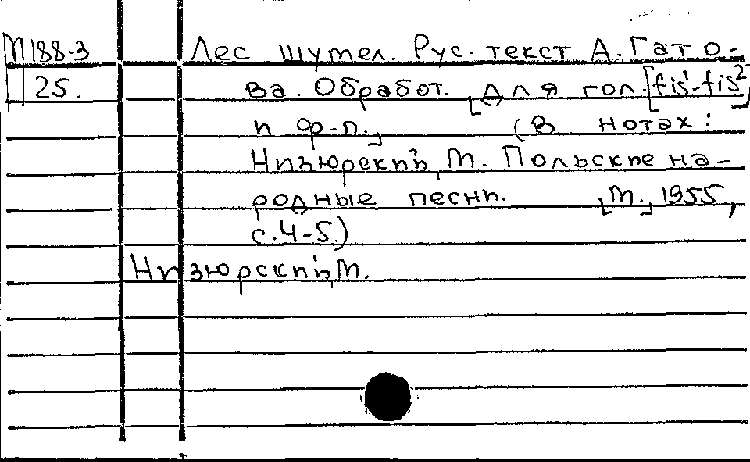 М188-3 Лес шумел. Рус. текст А. Гато-
25. ва. Обработ. [для гол. [fis¹-fis²]
и ф-п.] (В нотах:
Низюрский, М. Польские на-
родные песни. [М.], 1955,
с. 4-5.)
Низюрский, М.